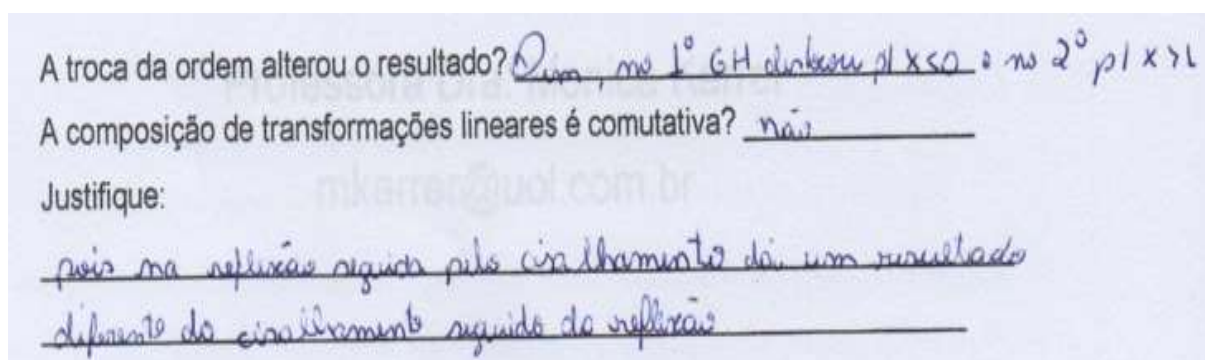 A troca da ordem alterou o resultado? Sim, no 1º GH deslocou p/ x<0 e no 2º p/ x>1
Professora Dra. Monica Karrer
A composição de transformações lineares é comutativa? não
mkarrer@uol.com.br
Justifique:
pois na reflexão seguida pelo cisalhamento dá um resultado
diferente do cisalhamento seguido da reflexão